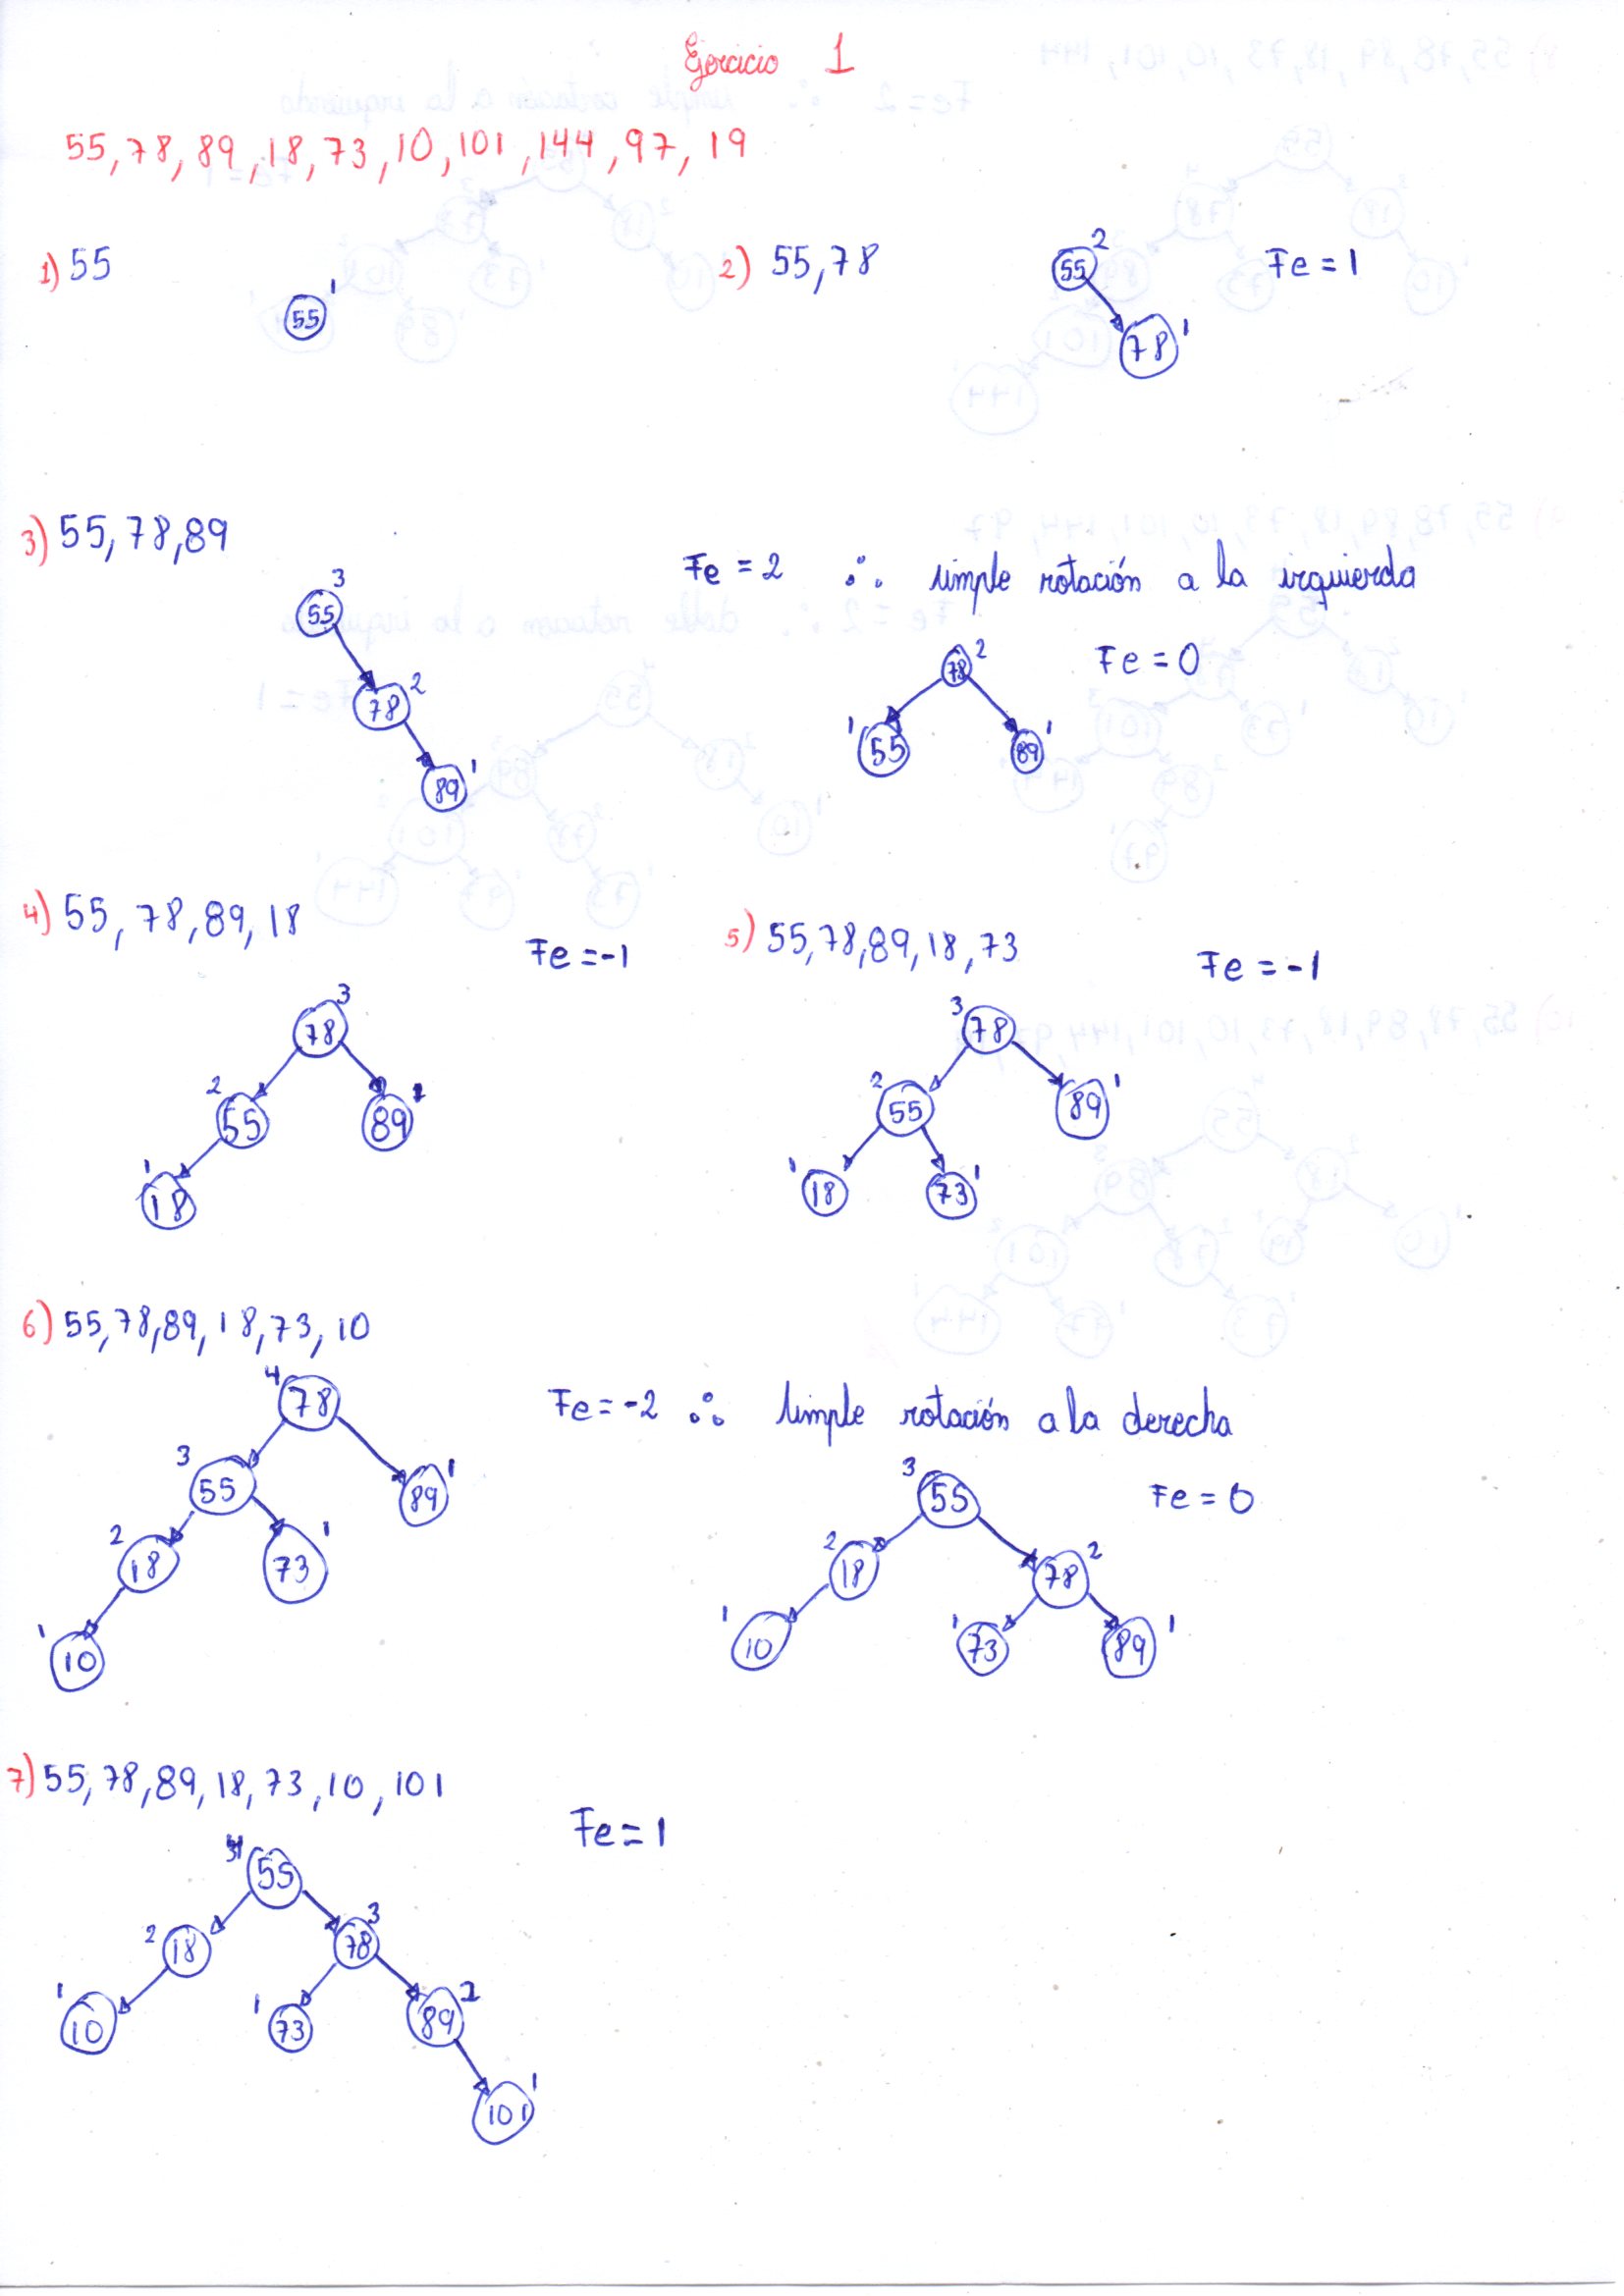 Ejercicio 1
55, 78, 89, 18, 73, 10, 101, 144, 97, 19
1) 55
1
55
2) 55, 78
2
55
Fe = 1
78
1
3) 55, 78, 89
3
55
78
2
89
1
Fe = 2 ∴ simple rotación a la izquierda
78
2
Fe = 0
1
55
89
1
4) 55, 78, 89, 18
Fe = -1
3
78
2
55
89
1
18
5) 55, 78, 89, 18, 73
Fe = -1
3
78
2
55
89
1
1
18
73
1
6) 55, 78, 89, 18, 73, 10
4
78
3
55
89
1
2
18
73
1
1
10
Fe = -2 ∴ simple rotación a la derecha
3
55
Fe = 0
2
18
78
2
1
10
1
73
89
1
7) 55, 78, 89, 18, 73, 10, 101
Fe = 1
4
55
2
18
78
3
1
10
1
73
89
2
101
1